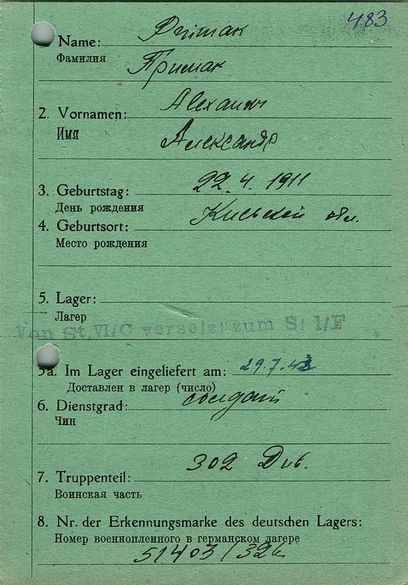 483
1. Name: Primak
Фамилия Примак
2. Vornamen: Alexandr
Имя Александр
3. Geburtstag: 22.4.1911
День рождения
4. Geburtsort: Киевской обл.
Место рождения
5. Lager:
Лагерь
Von St. VI/C versetzt zum St. 1/F
5a. Im Lager eingeliefert am: 29.7.43
Доставлен в лагерь (число)
6. Dienstgrad: солдат
Чин
302 Div.
7. Truppenteil:
Воинская часть
8. Nr. der Erkennungsmarke des deutschen Lagers:
Номер военнопленного в германском лагере
51403/326